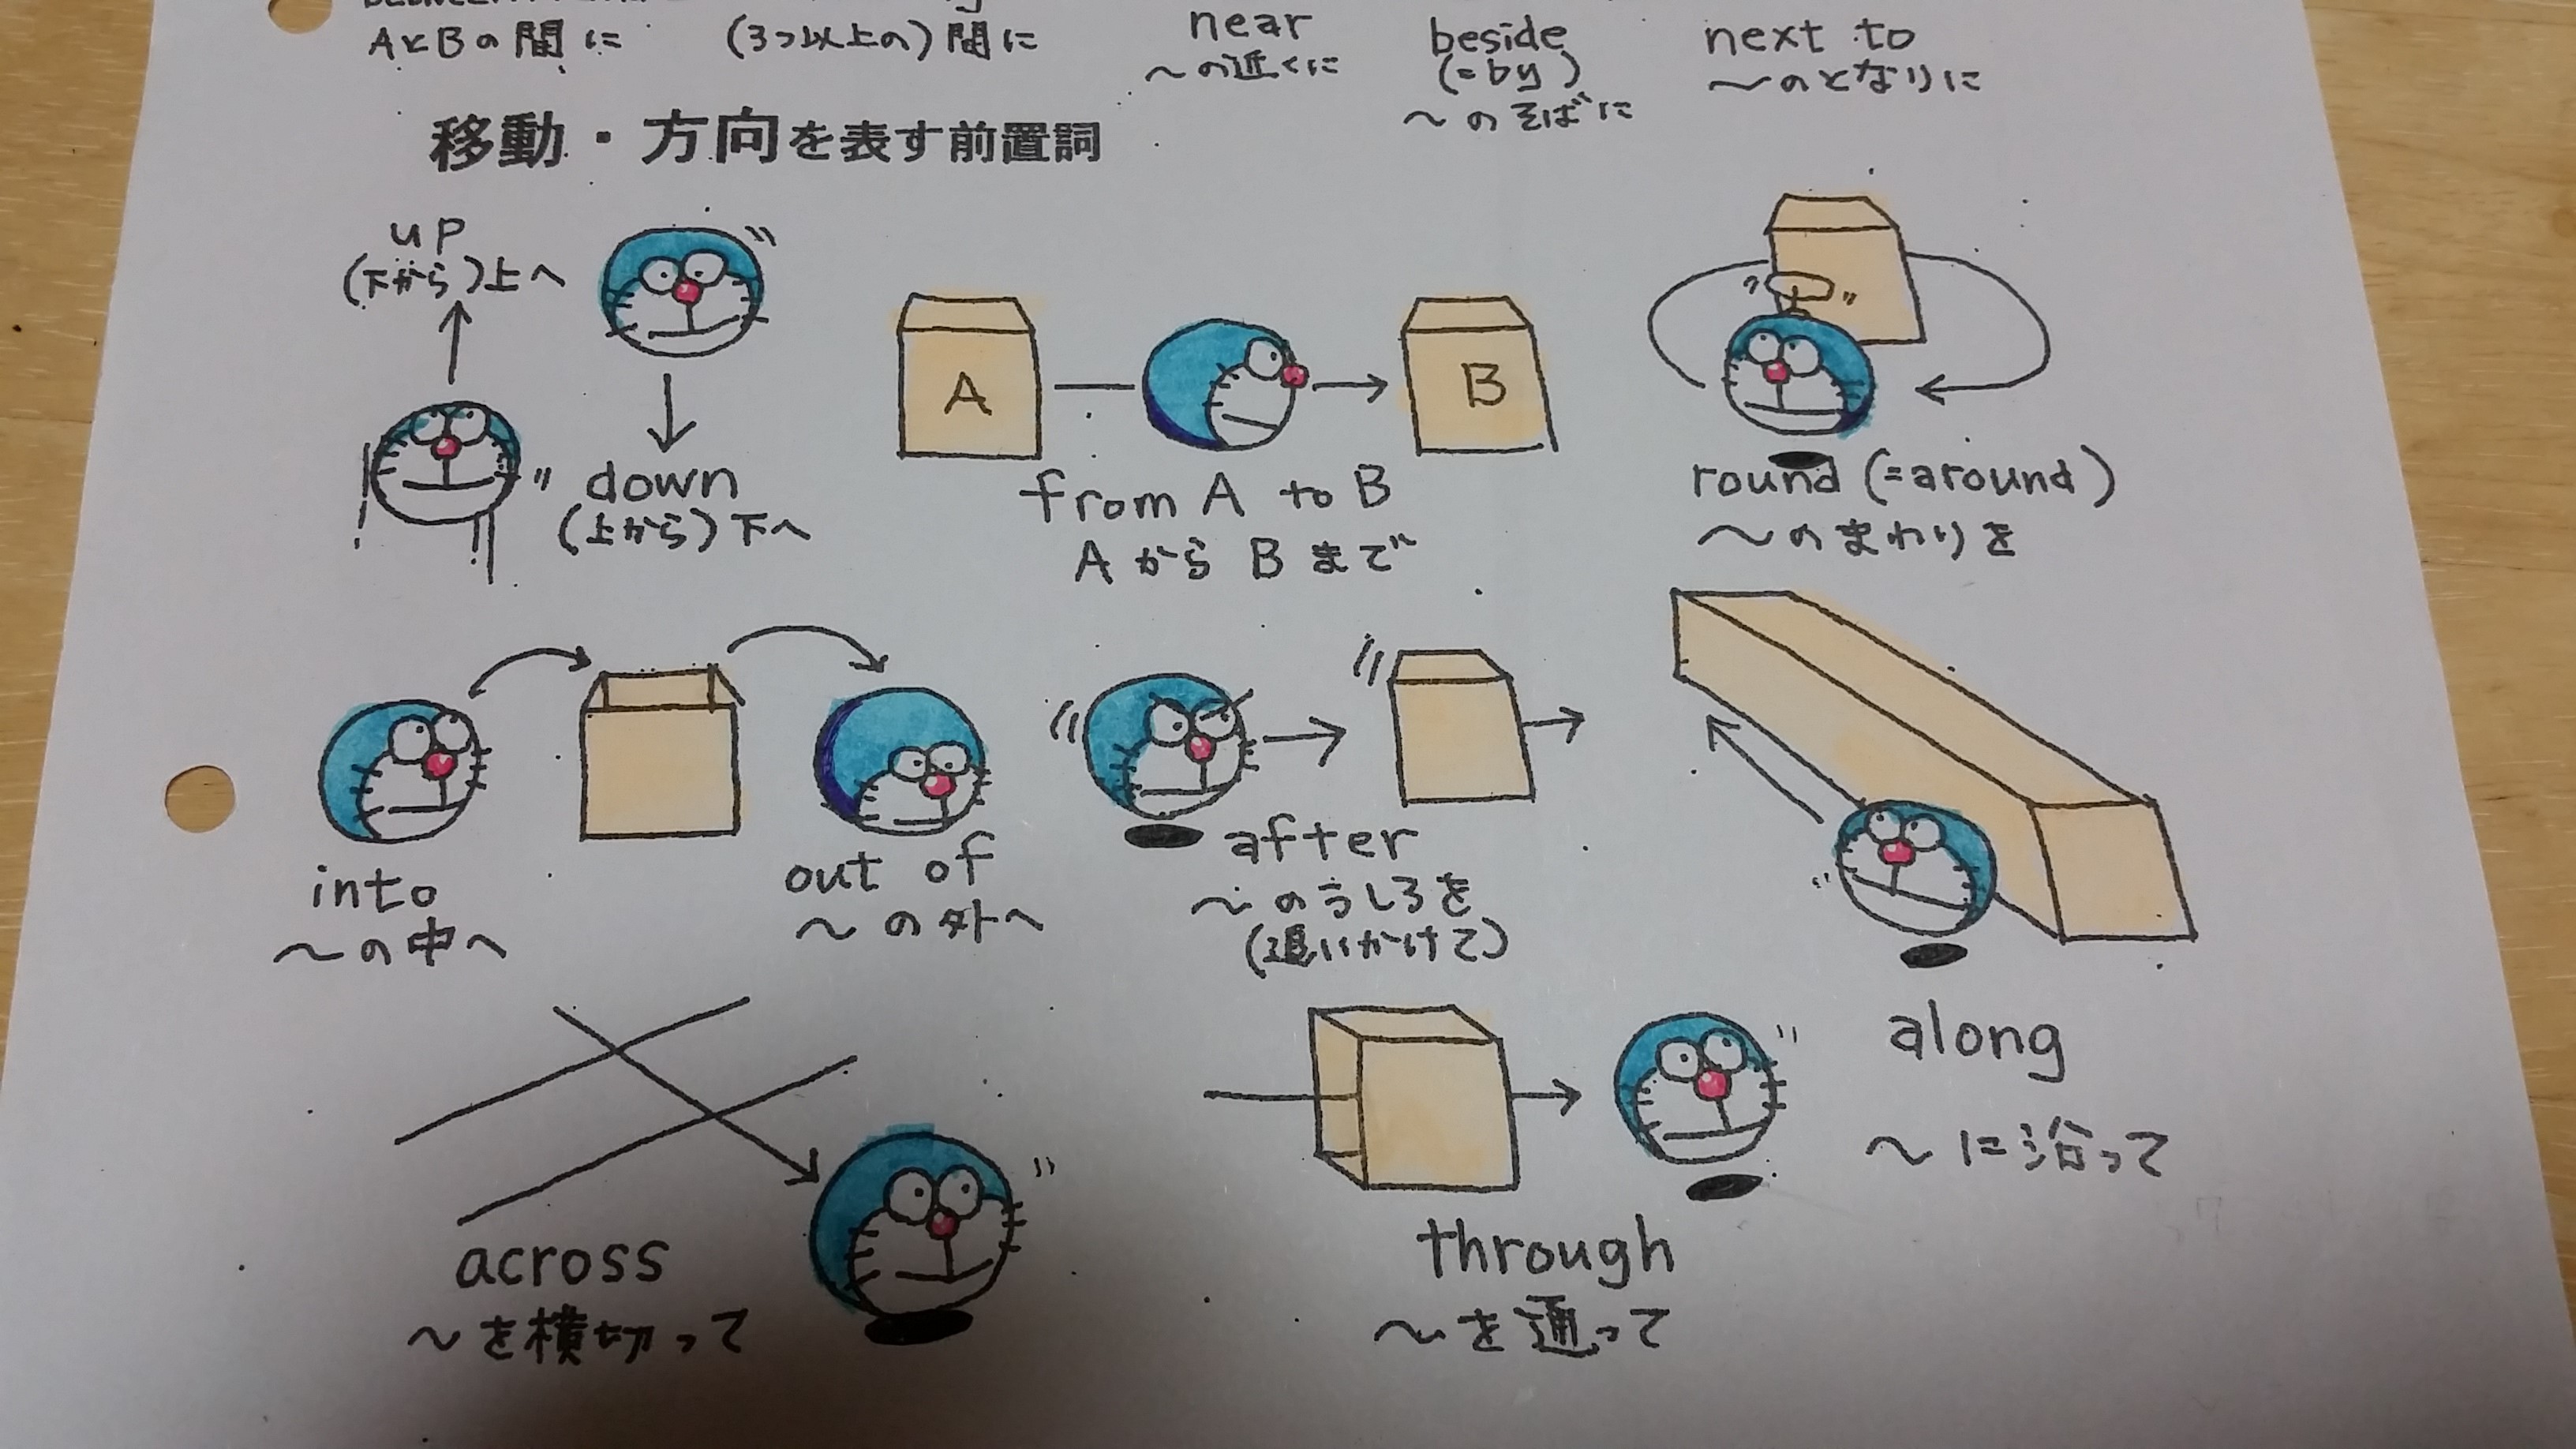 AとBの間に
(3つ以上の)間に
near
～の近くに
beside
(=by)
～のそばに
next to
～のとなりに
移動・方向を表す前置詞
up
(下から)上へ
down
(上から)下へ
A
B
from A to B
AからBまで
round (=around)
～のまわりを
into
～の中へ
out of
～の外へ
after
～のうしろを
(追いかけて)
along
～に沿って
across
～を横切って
through
～を通って